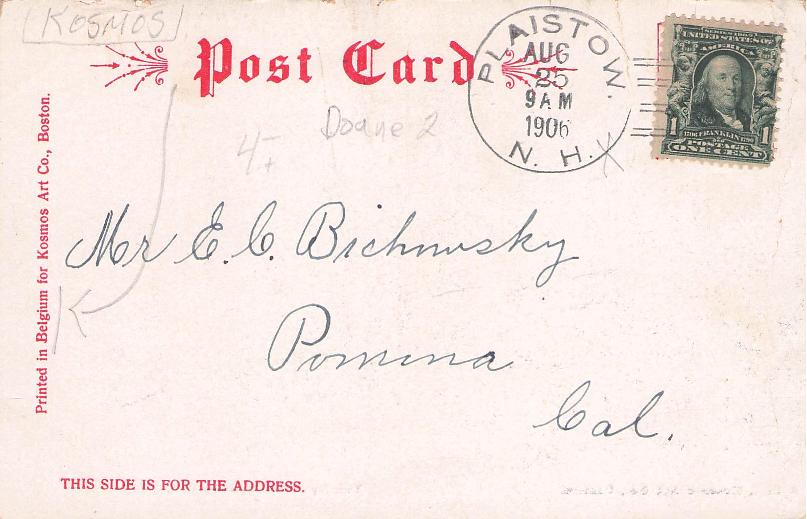 KOSMOS
Post Card
PLAISTOW.
AUG
25
9 AM
1906
N. H.
SERIES 1902
UNITED STATES OF
AMERICA
1706 FRANKLIN 1790
1 POSTAGE 1
ONE CENT
Doane 2
4-
Mr E. C. Bichowsky
Pomona
Cal.
Printed in Belgium for Kosmos Art Co., Boston.
THIS SIDE IS FOR THE ADDRESS.